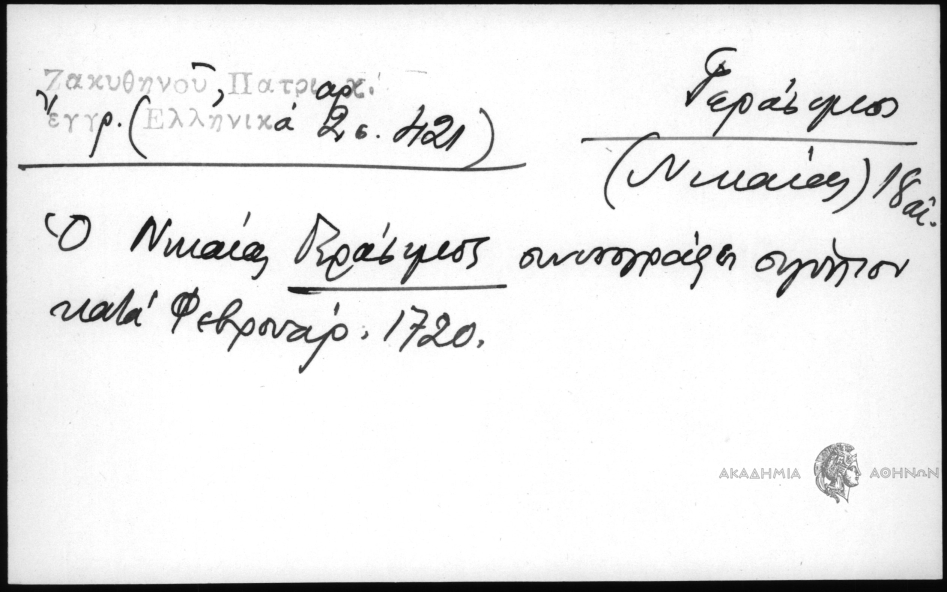 Ζακυθηνοῦ, Πατριαρχ.
ἔγγρ. (Ἑλληνικά 2 σ. 421)
Γεράσιμος
(Νικαίας) 18 αἰ.
Ὁ Νικαίας Γεράσιμος συνυπογράφει σιγίλλιον
κατά Φεβρουάρ. 1720.
ΑΚΑΔΗΜΙΑ ΑΘΗΝΩΝ